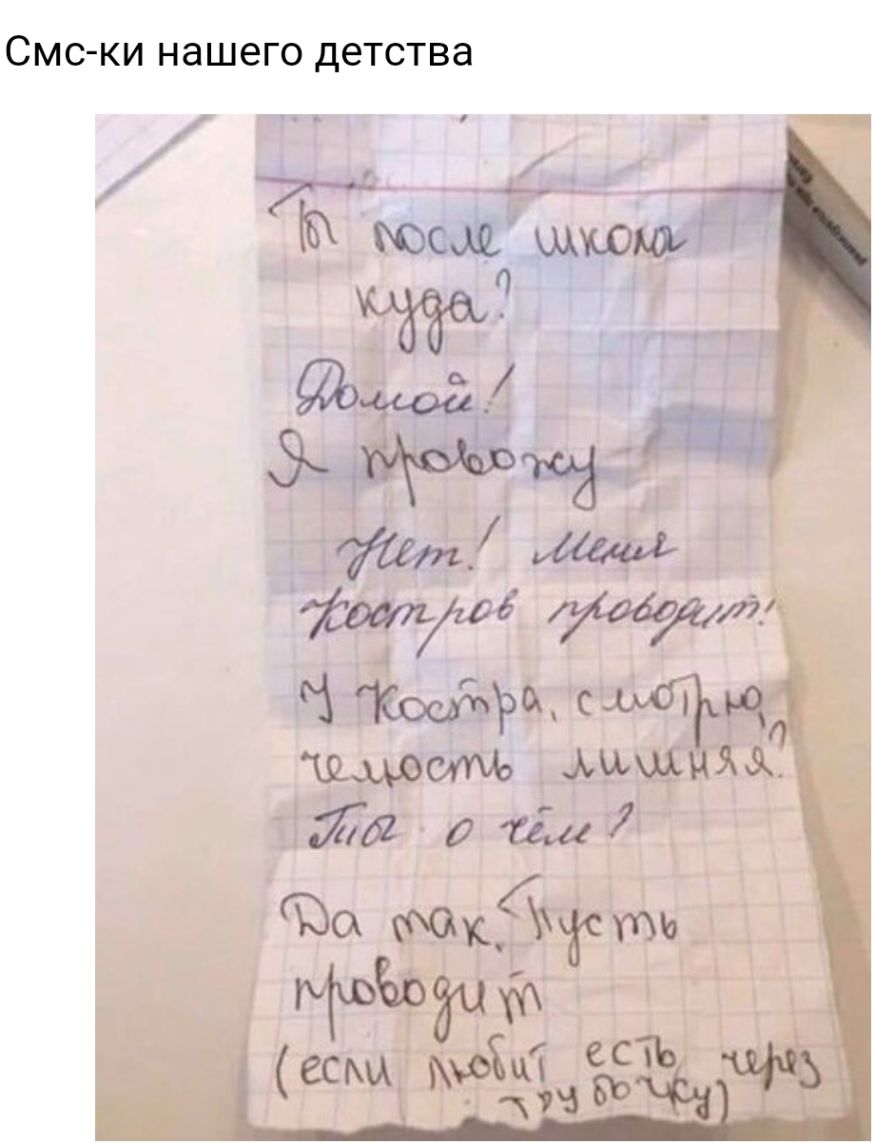 Смс-ки нашего детства
Ты после школа
куда?
Домой!
Я провожу
Нет! Меня
Костров проводит!
У Костра, смотрю,
челюсть лишняя?
Ты о чём?
Да так. Пусть
проводит
(если любит есть через
трубочку)